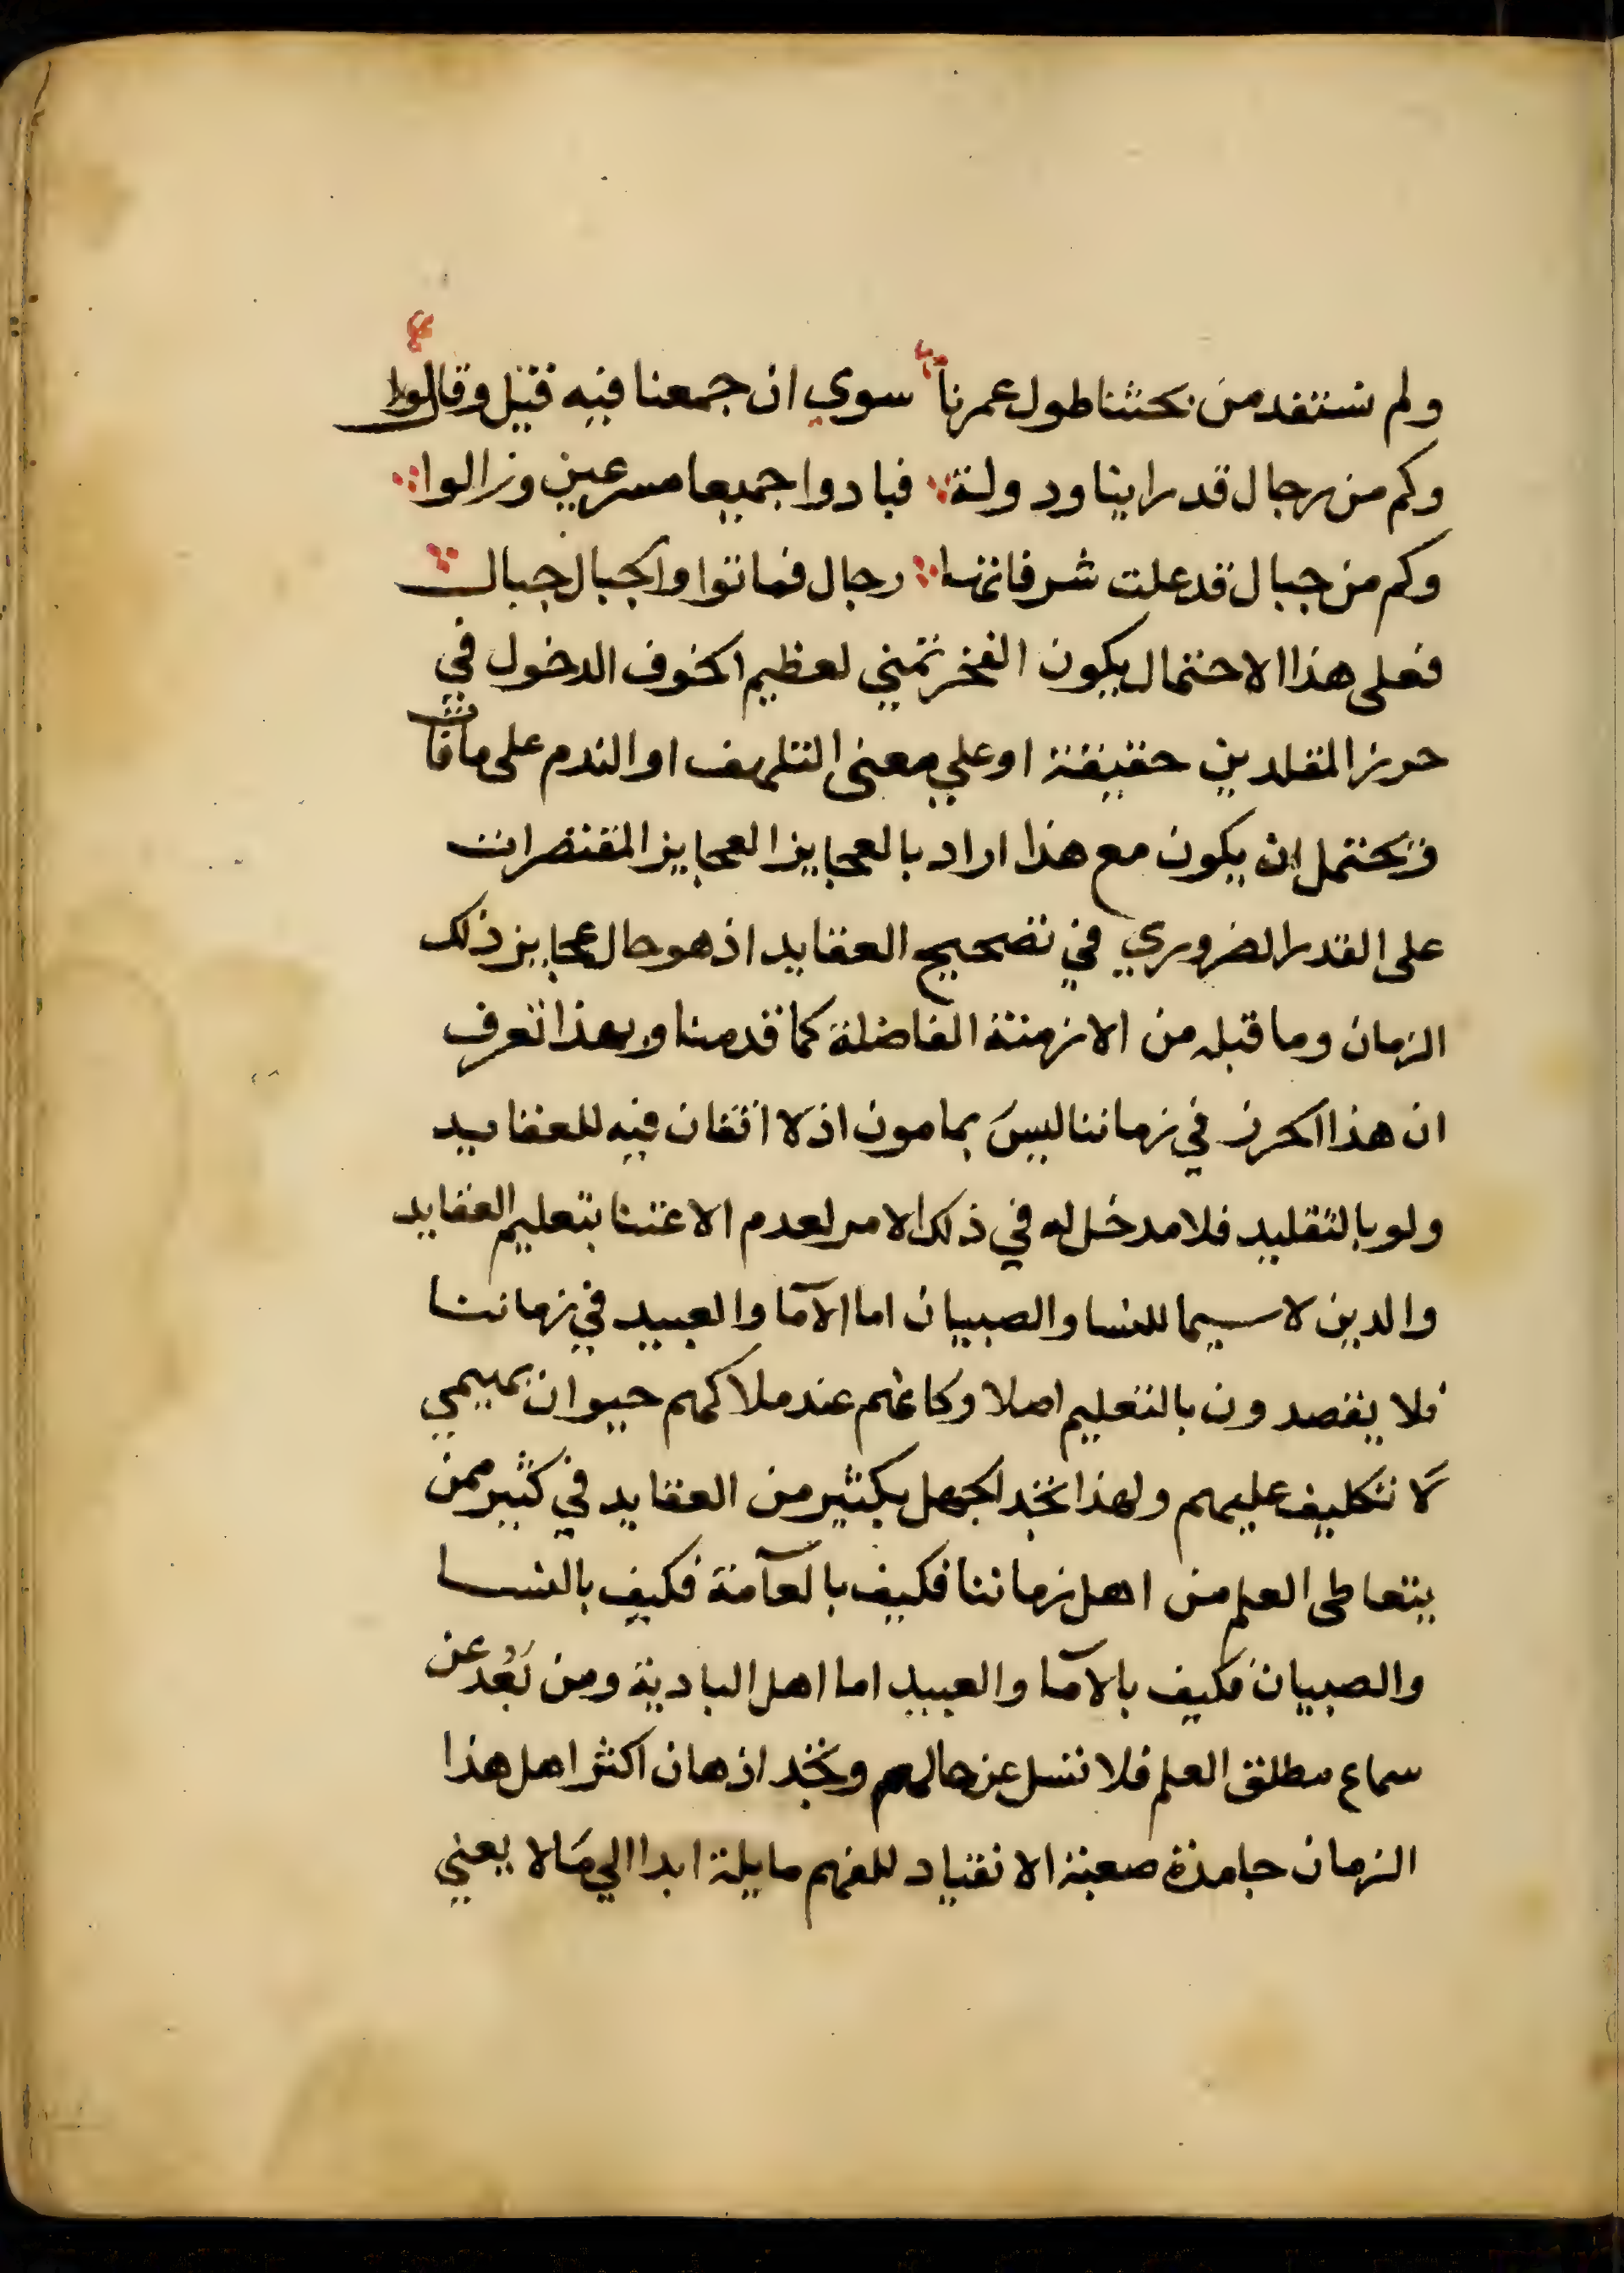 ولم نستفد من بحثنا طول عمرنا سوي ان جمعنا فيه قيل وقالوا
وكم من رجال قد راينا ودولة فبادوا جميعا مسرعين وزالوا
وكم من جبال قد علت شرفاتها رجال فماتوا والجبال جبال
فعلى هذا الاحتمال يكون الفخر تمني لعظيم الخوف الدخول في
حرز المقلدين حقيقة او علي معنى التلهف او الندم على ما فات
ويحتمل ان يكون مع هذا اراد بالعجايز العجايز المقتصرات
على القدر الضروري في تصحيح العقايد اذ هو حال عجايز ذلك
الزمان وما قبله من الازمنة الفاضلة كما قدمنا وبهذا تعرف
ان هذا الحرز في زماننا ليس بمامون اذ لا اتقان فيه للعقايد
ولو بالتقليد فلا مدخل له في ذلك الامر لعدم الاعتنا بتعليم العقايد
والدين لا سيما للنسا والصبيان اما الآما والعبيد في زماننا
فلا يقصدون بالتعليم اصلا وكانهم عند ملاكهم حيوان بهيمي
لا تكليف عليهم ولهذا تجد الجهل بكثير من العقايد في كثير ممن
يتعاطى العلم من اهل زماننا فكيف بالعآمة فكيف بالنسا
والصبيان فكيف بالآما والعبيد اما اهل البادية ومن بَعُد عن
سماع مطلق العلم فلا تسل عن حالهم وتجد اذهان اكثر اهل هذا
الزمان جامدة صعبة الانقياد للفهم مايلة ابدا الي مالا يعني